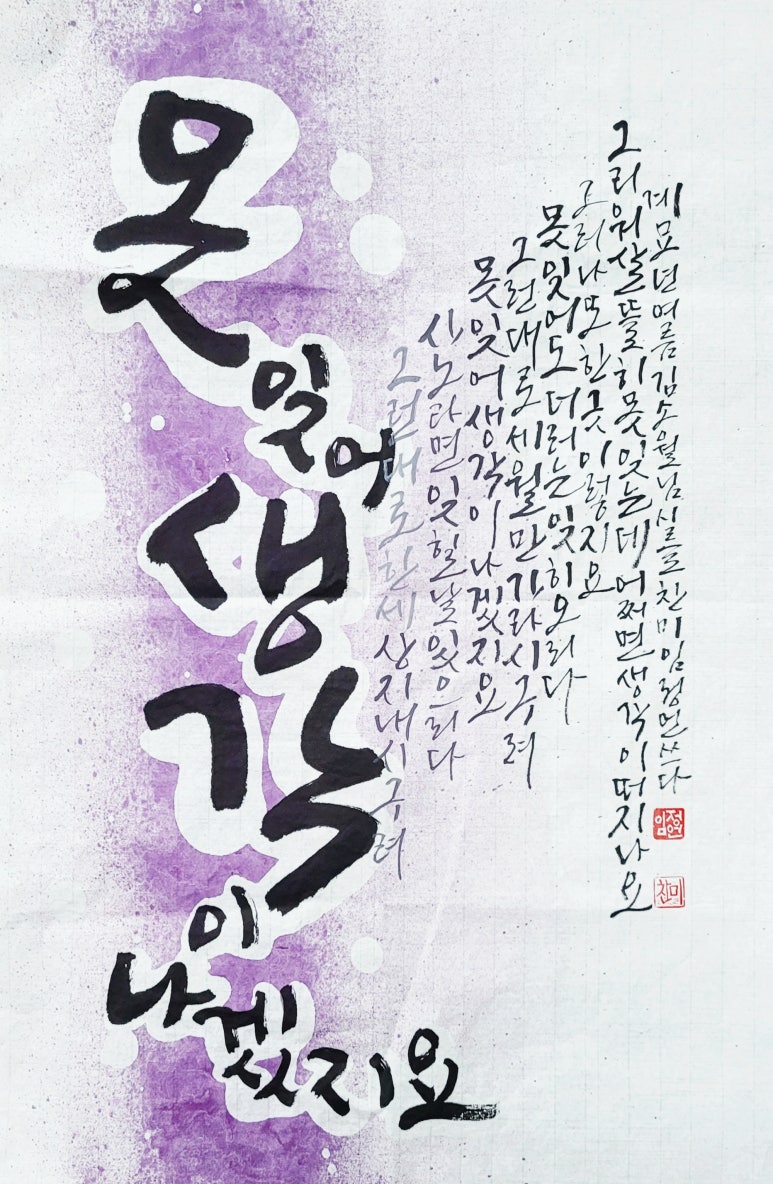 못 잊어 생각이 나겠지요
그런대로한세상지내시구려
사노라면잊힐날있으리다
못잊어생각이나겠지요
그런대로세월만가라시구려
못잊어도더러는잊히오리다
그러나또한긋이렇지요
그리워살뜰히못잊는데어쩌면생각이떠지나요
계묘년여름김소월님시를찬미임정연쓰다
임정연
찬미